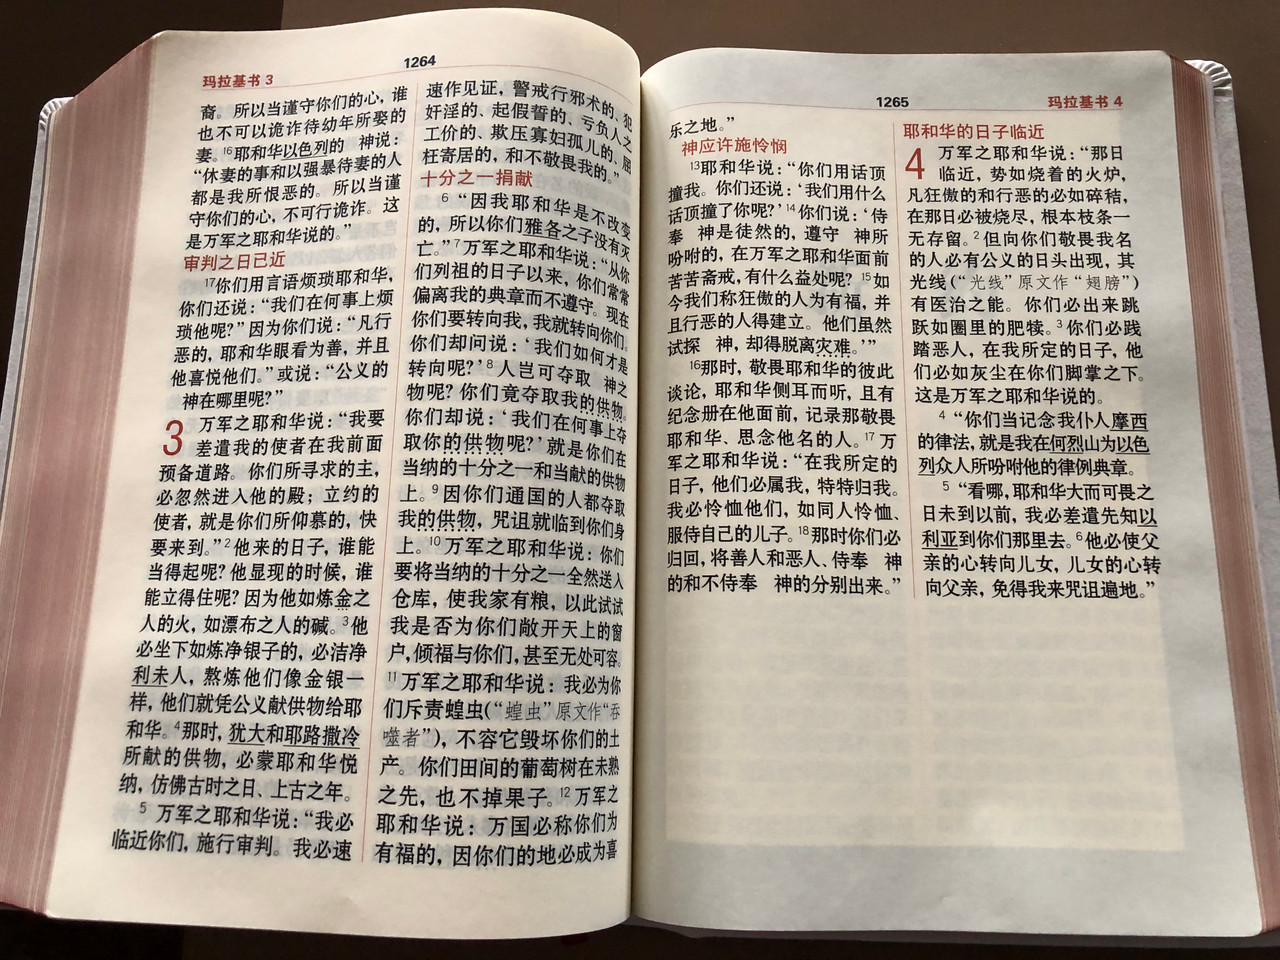 玛拉基书 3
1264
裔。所以当谨守你们的心，谁
也不可以诡诈待幼年所娶的
妻。16耶和华以色列的　神说：
“休妻的事和以强暴待妻的人
都是我所恨恶的。所以当谨
守你们的心，不可行诡诈。这
是万军之耶和华说的。”
审判之日已近
17你们用言语烦琐耶和华，
你们还说：“我们在何事上烦
琐他呢？”因为你们说：“凡行
恶的，耶和华眼看为善，并且
他喜悦他们。”或说：“公义的
神在哪里呢？”
3 万军之耶和华说：“我要
差遣我的使者在我前面
预备道路。你们所寻求的主，
必忽然进入他的殿；立约的
使者，就是你们所仰慕的，快
要来到。”2他来的日子，谁能
当得起呢？他显现的时候，谁
能立得住呢？因为他如炼金之
人的火，如漂布之人的碱。3他
必坐下如炼净银子的，必洁净
利未人，熬炼他们像金银一
样，他们就凭公义献供物给耶
和华。4那时，犹大和耶路撒冷
所献的供物，必蒙耶和华悦
纳，仿佛古时之日、上古之年。
5 万军之耶和华说：“我必
临近你们，施行审判。我必速
速作见证，警戒行邪术的、犯
奸淫的、起假誓的、亏负人之
工价的、欺压寡妇孤儿的、屈
枉寄居的，和不敬畏我的。”
十分之一捐献
6 “因我耶和华是不改变
的，所以你们雅各之子没有灭
亡。”7万军之耶和华说：“从你
们列祖的日子以来，你们常常
偏离我的典章而不遵守。现在
你们要转向我，我就转向你们。
你们却问说：‘我们如何才是
转向呢？’8人岂可夺取　神之
物呢？你们竟夺取我的供物。
你们却说：‘我们在何事上夺
取你的供物呢？’就是你们在
当纳的十分之一和当献的供物
上。9因你们通国的人都夺取
我的供物，咒诅就临到你们身
上。10万军之耶和华说：你们
要将当纳的十分之一全然送入
仓库，使我家有粮，以此试试
我是否为你们敞开天上的窗
户，倾福与你们，甚至无处可容。
11万军之耶和华说：我必为你
们斥责蝗虫（“蝗虫”原文作“吞
噬者”），不容它毁坏你们的土
产。你们田间的葡萄树在未熟
之先，也不掉果子。12万军之
耶和华说：万国必称你们为
有福的，因你们的地必成为喜
1265
玛拉基书 4
乐之地。”
神应许施怜悯
13耶和华说：“你们用话顶
撞我。你们还说：‘我们用什么
话顶撞了你呢？’14你们说：‘侍
奉　神是徒然的，遵守　神所
吩咐的，在万军之耶和华面前
苦苦斋戒，有什么益处呢？15如
今我们称狂傲的人为有福，并
且行恶的人得建立。他们虽然
试探　神，却得脱离灾难。’”
16那时，敬畏耶和华的彼此
谈论，耶和华侧耳而听，且有
纪念册在他面前，记录那敬畏
耶和华、思念他名的人。17万
军之耶和华说：“在我所定的
日子，他们必属我，特特归我。
我必怜恤他们，如同人怜恤、
服侍自己的儿子。18那时你们必
归回，将善人和恶人、侍奉　神
的和不侍奉　神的分别出来。”
耶和华的日子临近
4 万军之耶和华说：“那日
临近，势如烧着的火炉，
凡狂傲的和行恶的必如碎秸，
在那日必被烧尽，根本枝条一
无存留。2但向你们敬畏我名
的人必有公义的日头出现，其
光线（“光线”原文作“翅膀”）
有医治之能。你们必出来跳
跃如圈里的肥犊。3你们必践
踏恶人，在我所定的日子，他
们必如灰尘在你们脚掌之下。
这是万军之耶和华说的。
4 “你们当记念我仆人摩西
的律法，就是我在何烈山为以色
列众人所吩咐他的律例典章。
5 “看哪，耶和华大而可畏之
日未到以前，我必差遣先知以
利亚到你们那里去。6他必使父
亲的心转向儿女，儿女的心转
向父亲，免得我来咒诅遍地。”